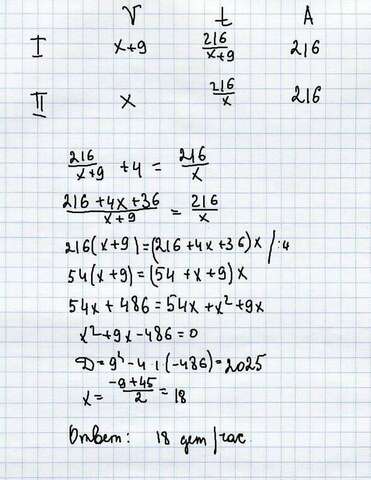 V t A
I x+9 216/(x+9) 216
II x 216/x 216
216/(x+9) +4 = 216/x
(216+4x+36)/(x+9) = 216/x
216(x+9)=(216+4x+36)x /:4
54(x+9)=(54+x+9)x
54x+486=54x+x²+9x
x²+9x-486=0
D=9²-4·1·(-486)=2025
x=(-9+45)/2=18
Ответ: 18 дет/час.